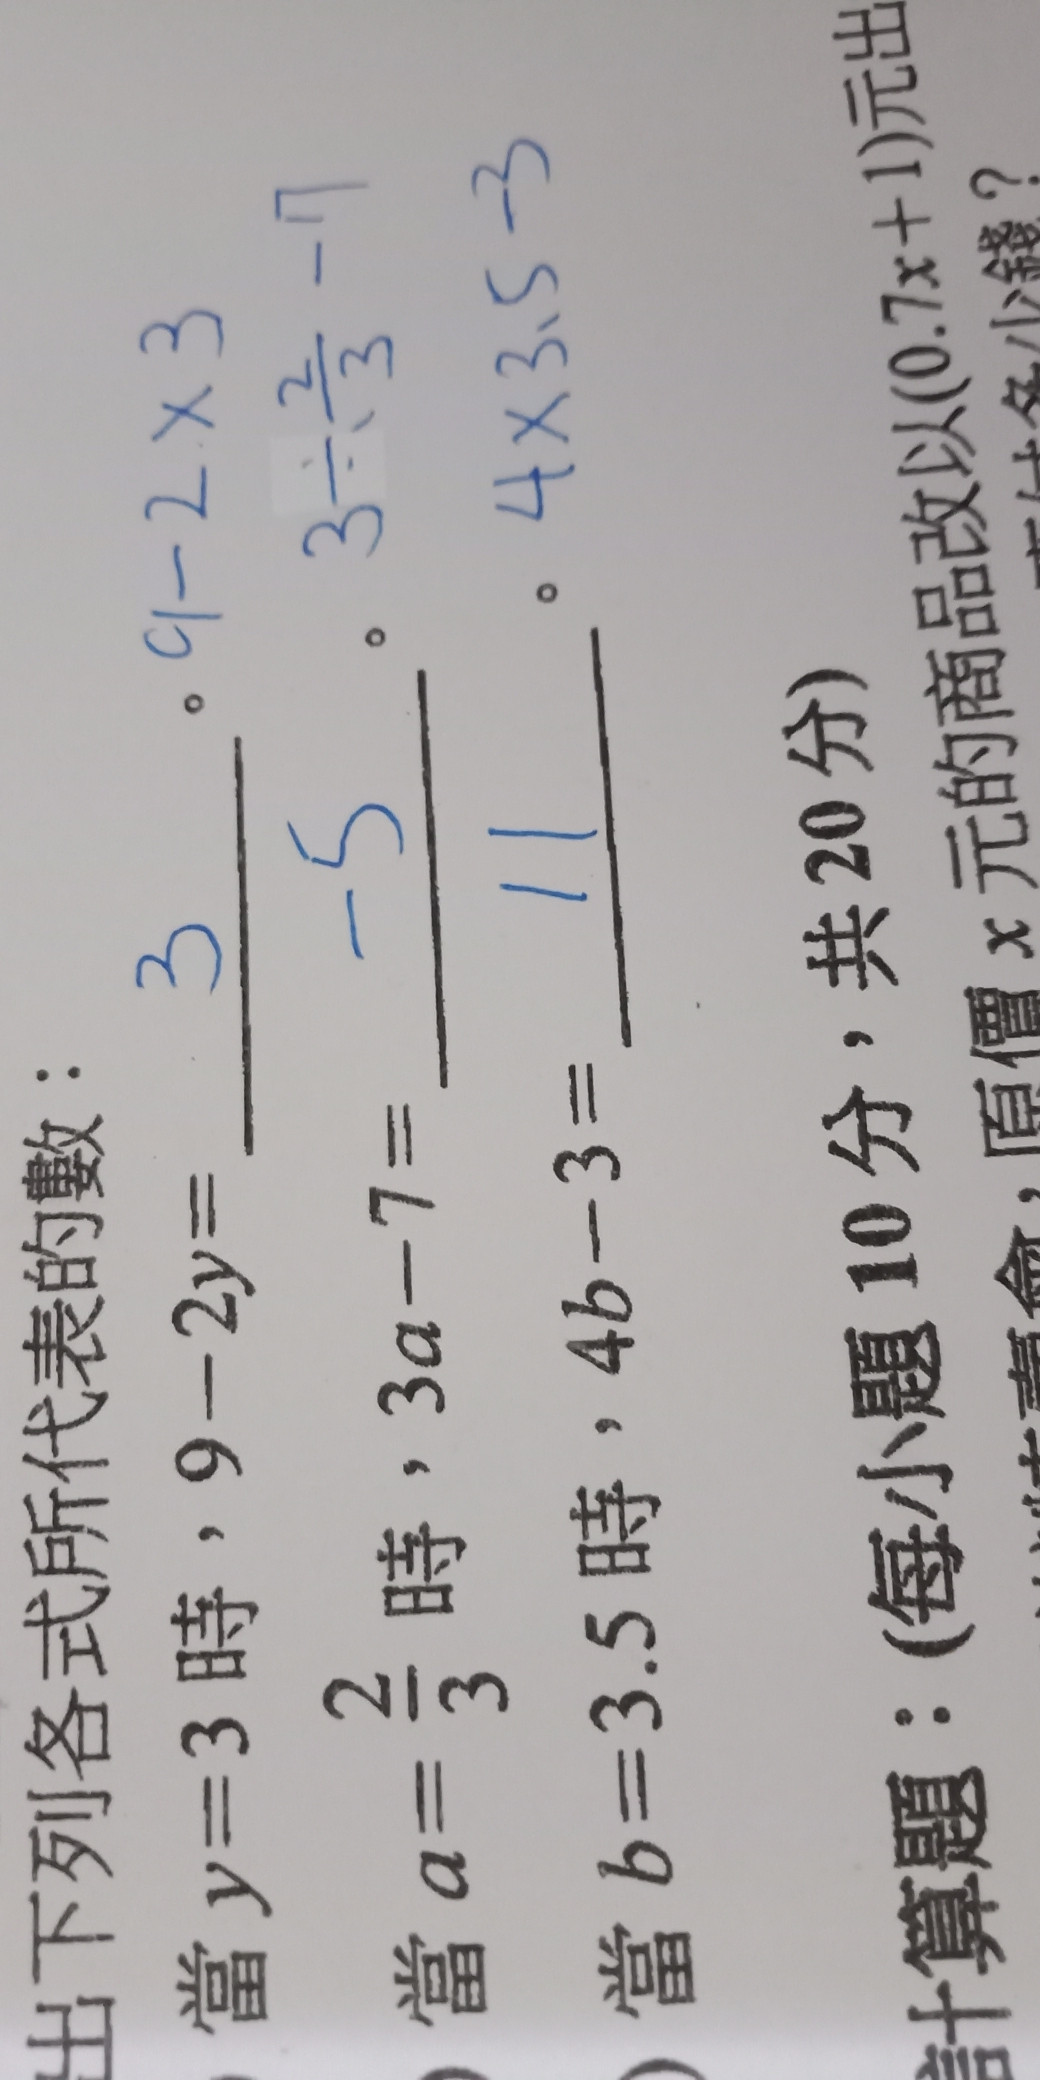 出下列各式所代表的數：
當 y＝3 時，9－2y＝ 3 。 9－2×3
當 a＝2/3 時，3a－7＝ －5 。 3÷2/3 －7
當 b＝3.5 時，4b－3＝ 11 。 4×3.5－3
計算題：(每小題 10 分，共 20 分)
，原價 x 元的商品改以(0.7x＋1)元出